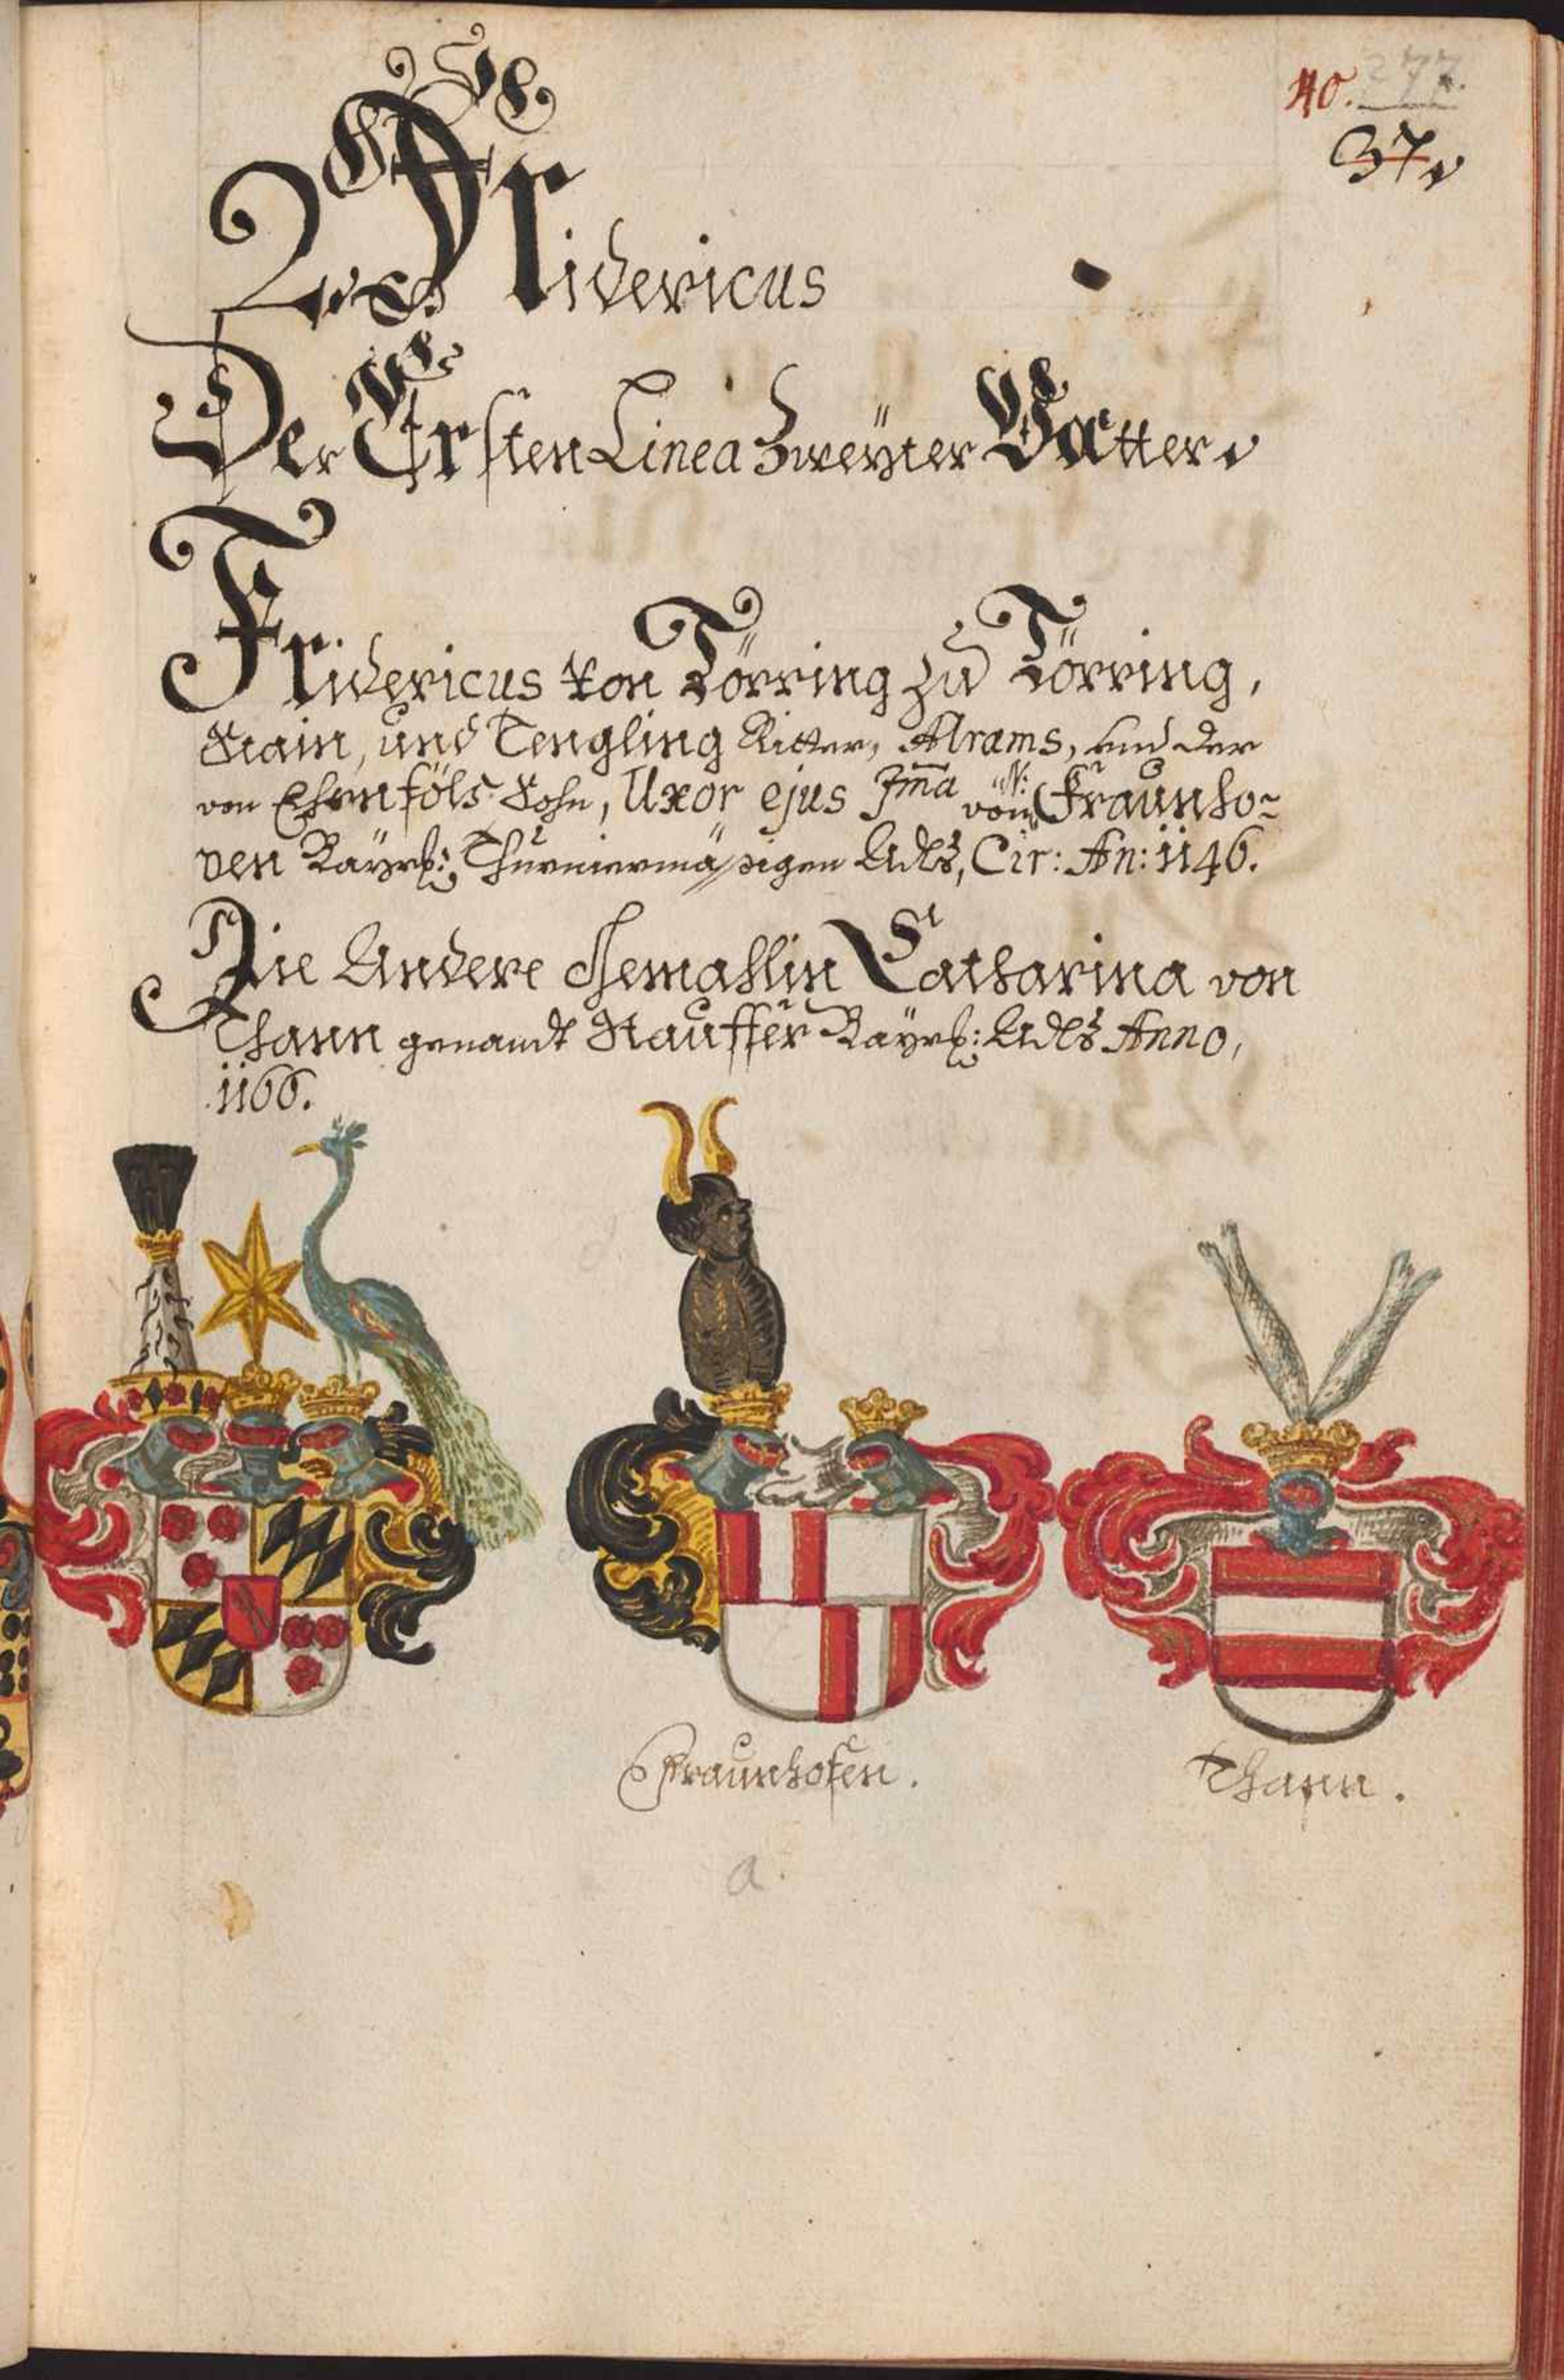 40. 277.
37.
Fridericus
Der Ersten Linea Zweyter Vatter.
Fridericus von Törring zu Törring,
Stain, und Tengling Ritter, Alrams, und der
von Ehrnföls Sohn, Uxor ejus Jma N: von Fraunho-
ven Bayrl: Thurniermässigen Adls, Cir: An: 1146.
Die Andere Gemahlin Catharina von
Thann genandt Stauffer Bayrl: Adls Anno,
1166.
Fraunhofen.
Thann.
a.